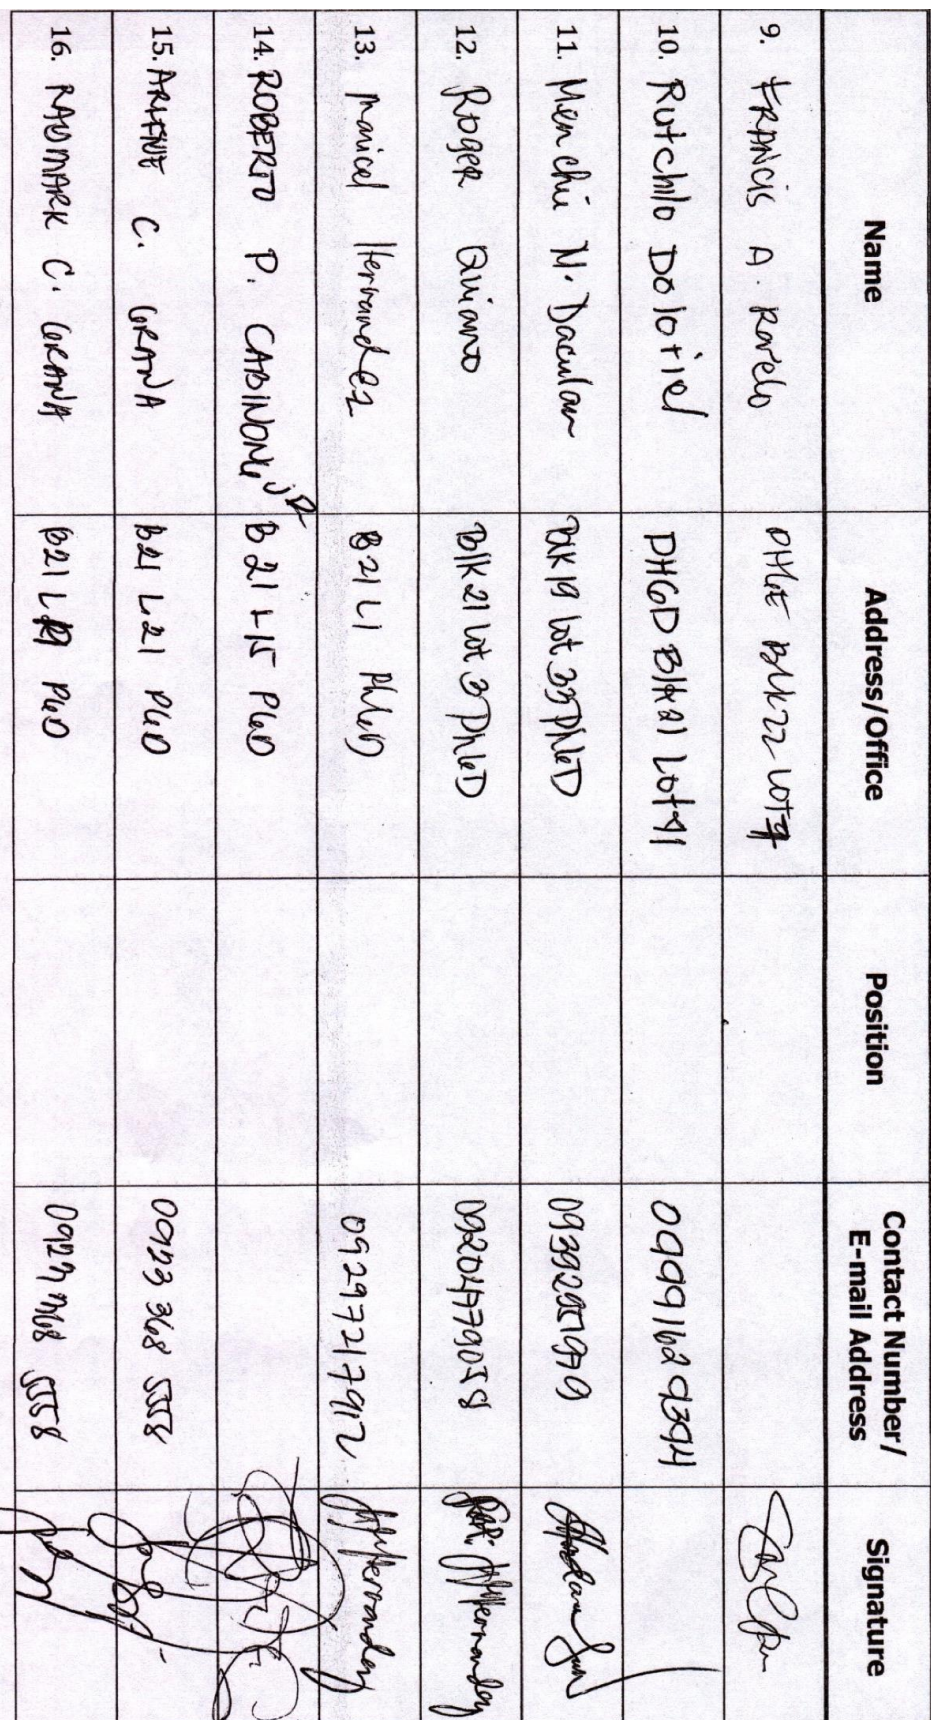 Name Address/Office Position Contact Number/ E-mail Address Signature
9. FRANCIS A. Ravelo PH6E BLK22 LOT
10. Rutchilo Dolotiel PH6D Blk21 Lot41 09991629394
11. Menchu N. Daculan Blk 19 Lot 33 Ph6D
12. Roger Quiano Blk 21 Lot 3 Ph6D 09204779058
13. Maricel Hernandez B21 L1 Ph6D 09297217912
14. ROBERTO P. CABINONG JR B21 L15 P6D
15. ARLENE C. GRANA B21 L21 P6D 0923 368 5558
16. RAUMARK C. GRANA B21 L P6D